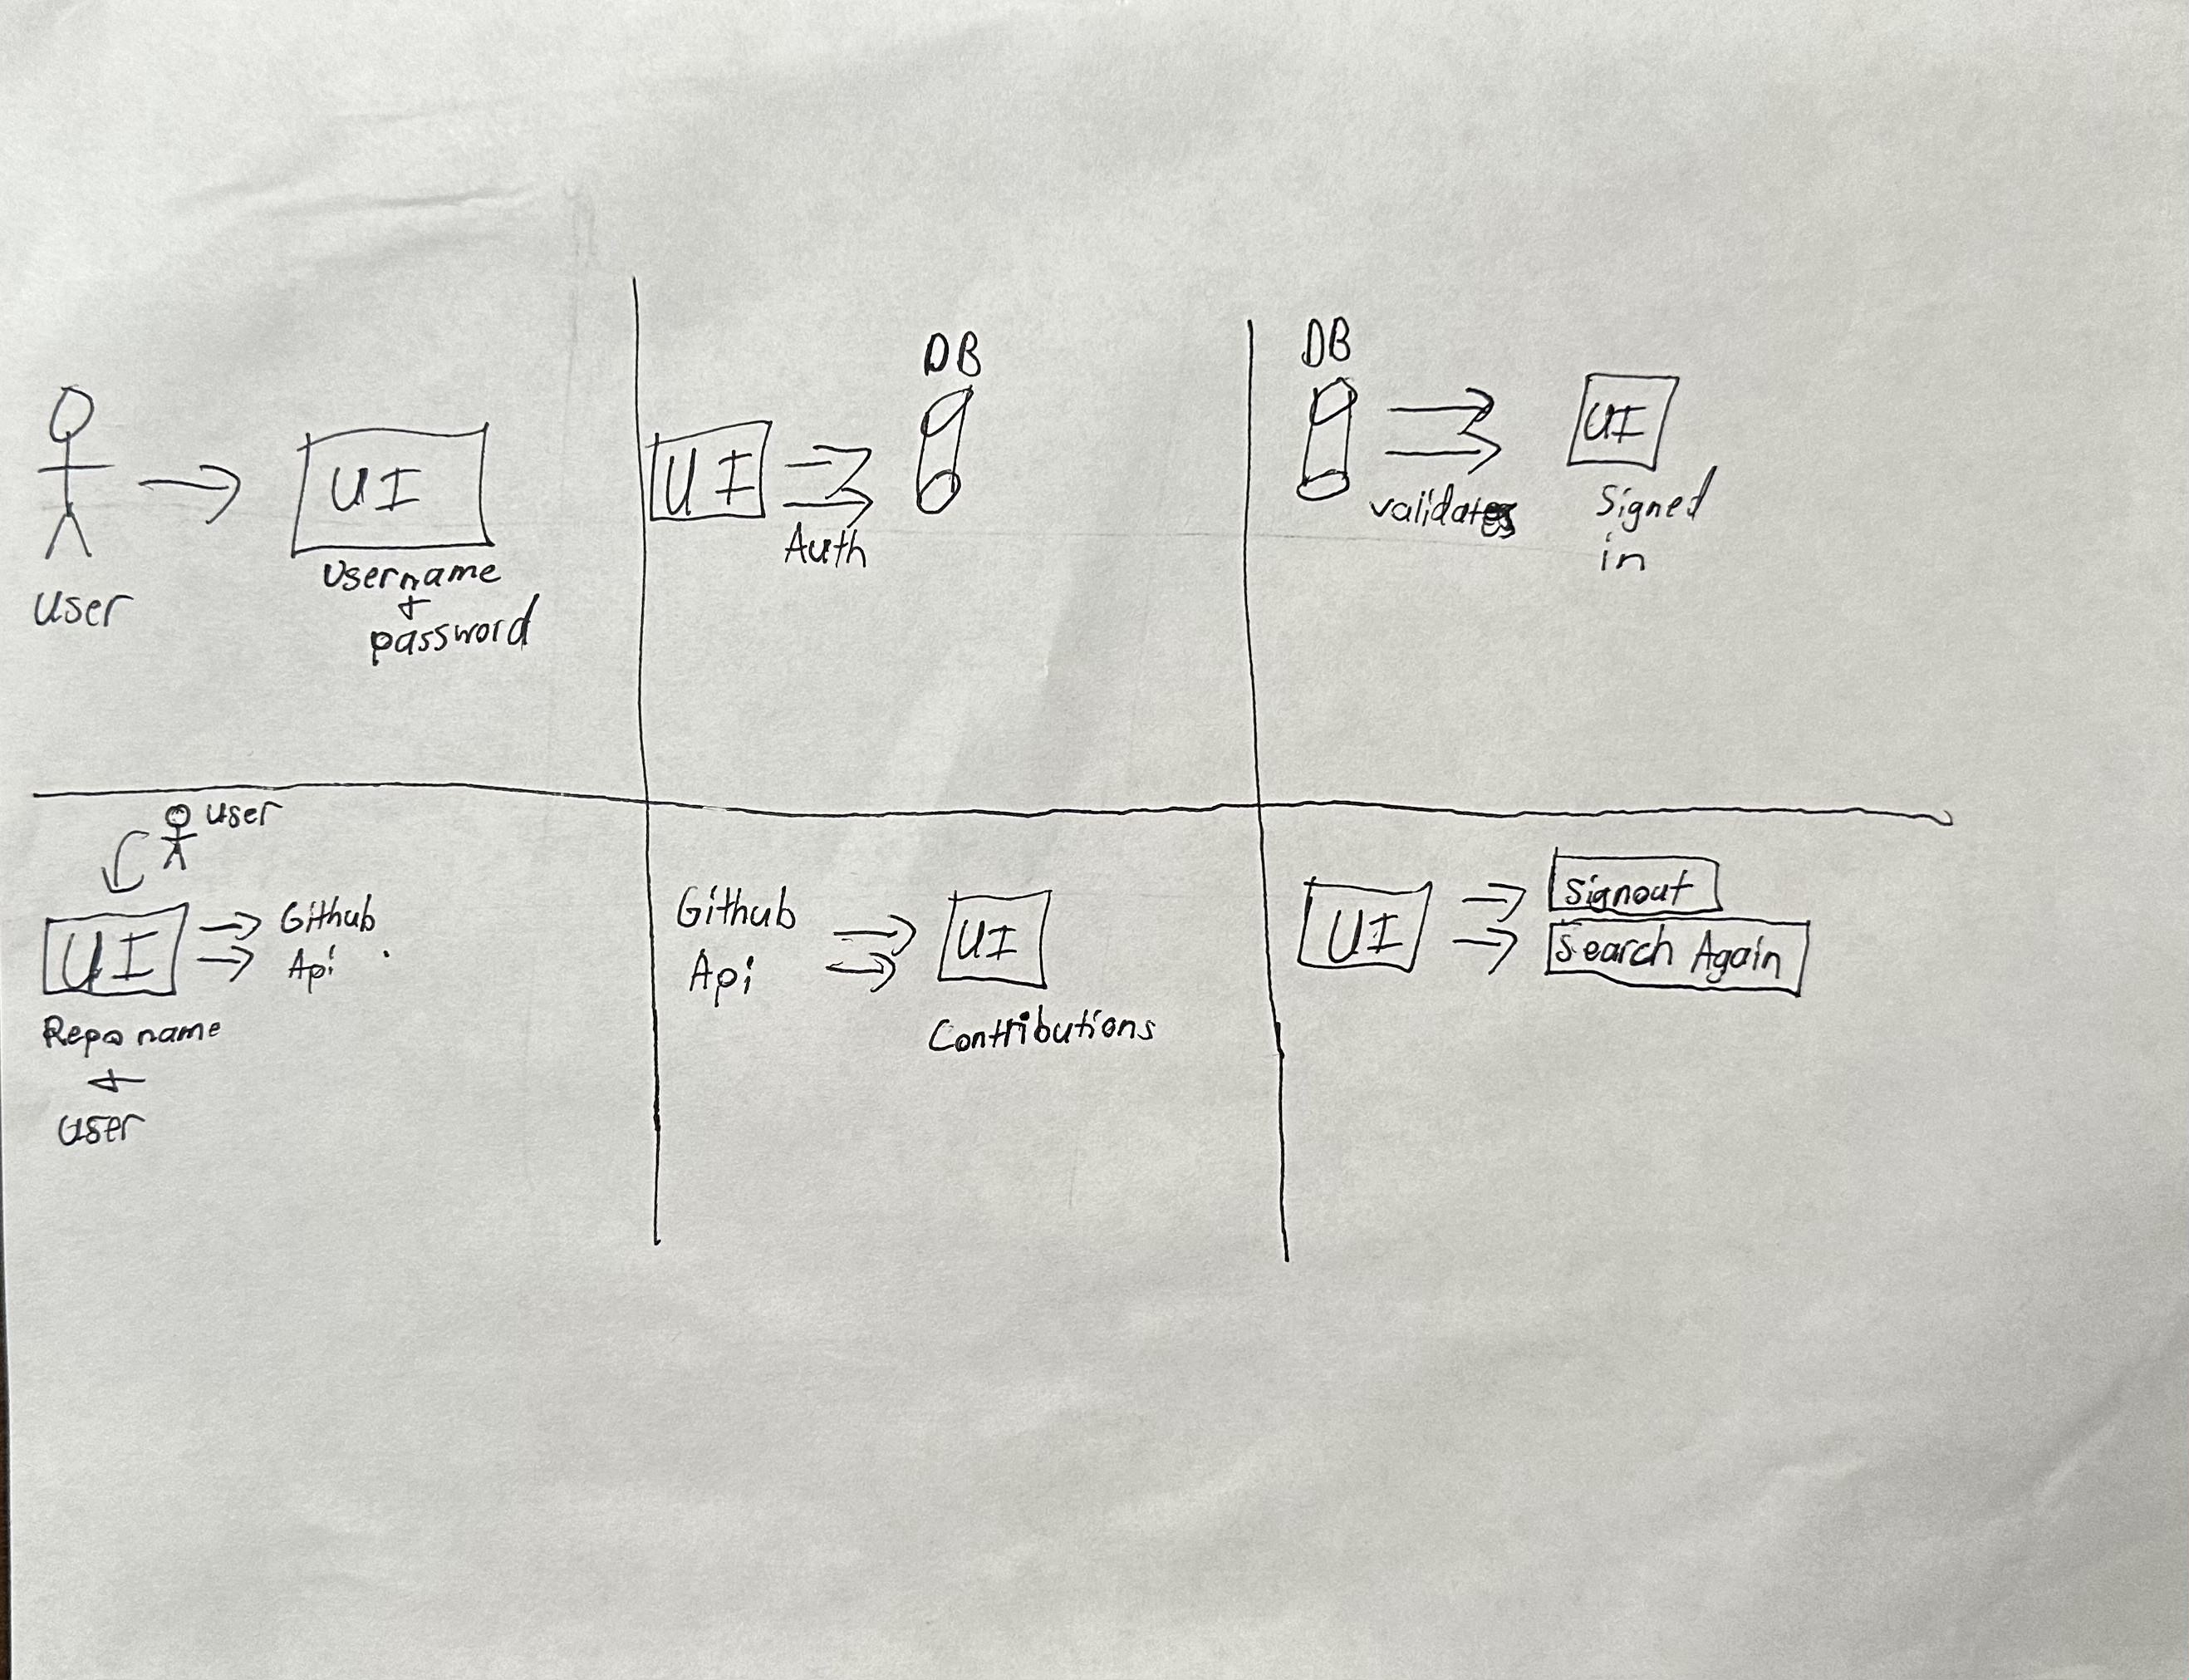 User
UI
Username
+
password
UI
Auth
DB
DB
validates
UI
Signed
in
User
UI
Github
Api
Repo name
+
User
Github
Api
UI
Contributions
UI
Signout
Search Again